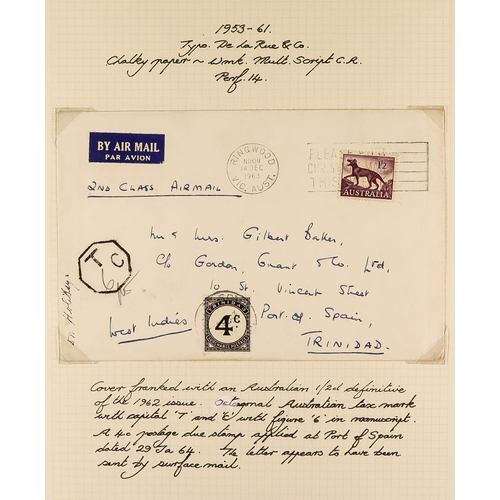 1953-61.
Typo. De La Rue & Co.
Chalky paper ~ Wmk. Mult. Script C.A.
Perf. 14.
BY AIR MAIL
PAR AVION
RINGWOOD
NOON
14 DEC
1963
VIC. AUST.
1/2
AUSTRALIA
2ND CLASS AIRMAIL
Mr & Mrs. Gilbert Baker,
C/o Gordon, Grant & Co. Ltd,
10 St. Vincent Street
Port of Spain,
TRINIDAD.
West Indies
T C
6
TRINIDAD
4c.
Cover franked with an Australian 1/2d definitive
of the 1962 issue. Octagonal Australian tax mark
with capital 'T' and 'C' with figure '6' in manuscript.
A 4c postage due stamp applied at Port of Spain
dated 29 Ja 64. The letter appears to have been
sent by surface mail.